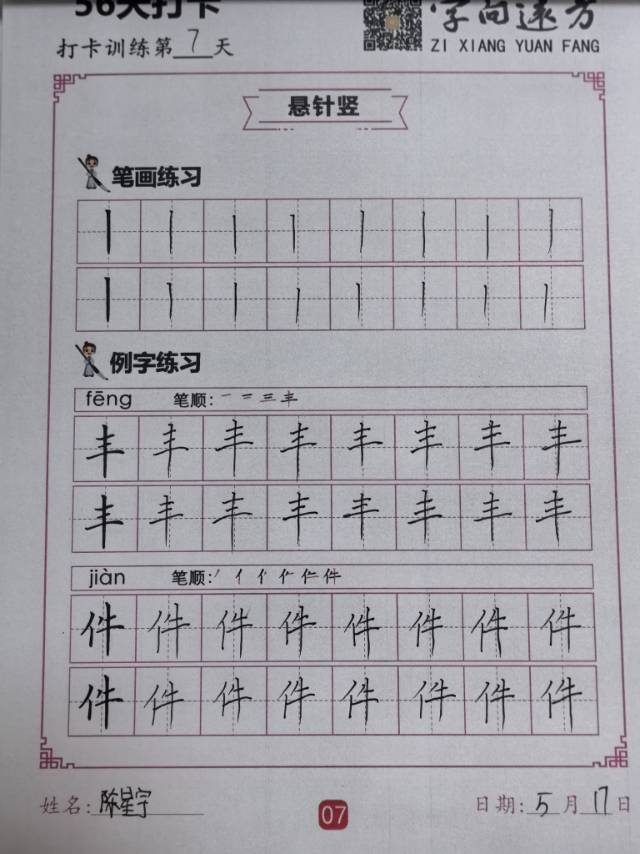 56天打卡
字向远方
打卡训练第7天
ZI XIANG YUAN FANG
悬针竖
笔画练习
例字练习
fēng 笔顺: 一 二 三 丰
丰 丰 丰 丰 丰 丰 丰 丰
丰 丰 丰 丰 丰 丰 丰 丰
jiàn 笔顺: 丿 亻 亻 件
件 件 件 件 件 件 件 件
件 件 件 件 件 件 件 件
姓名: 陈星宇
07
日期: 5月17日